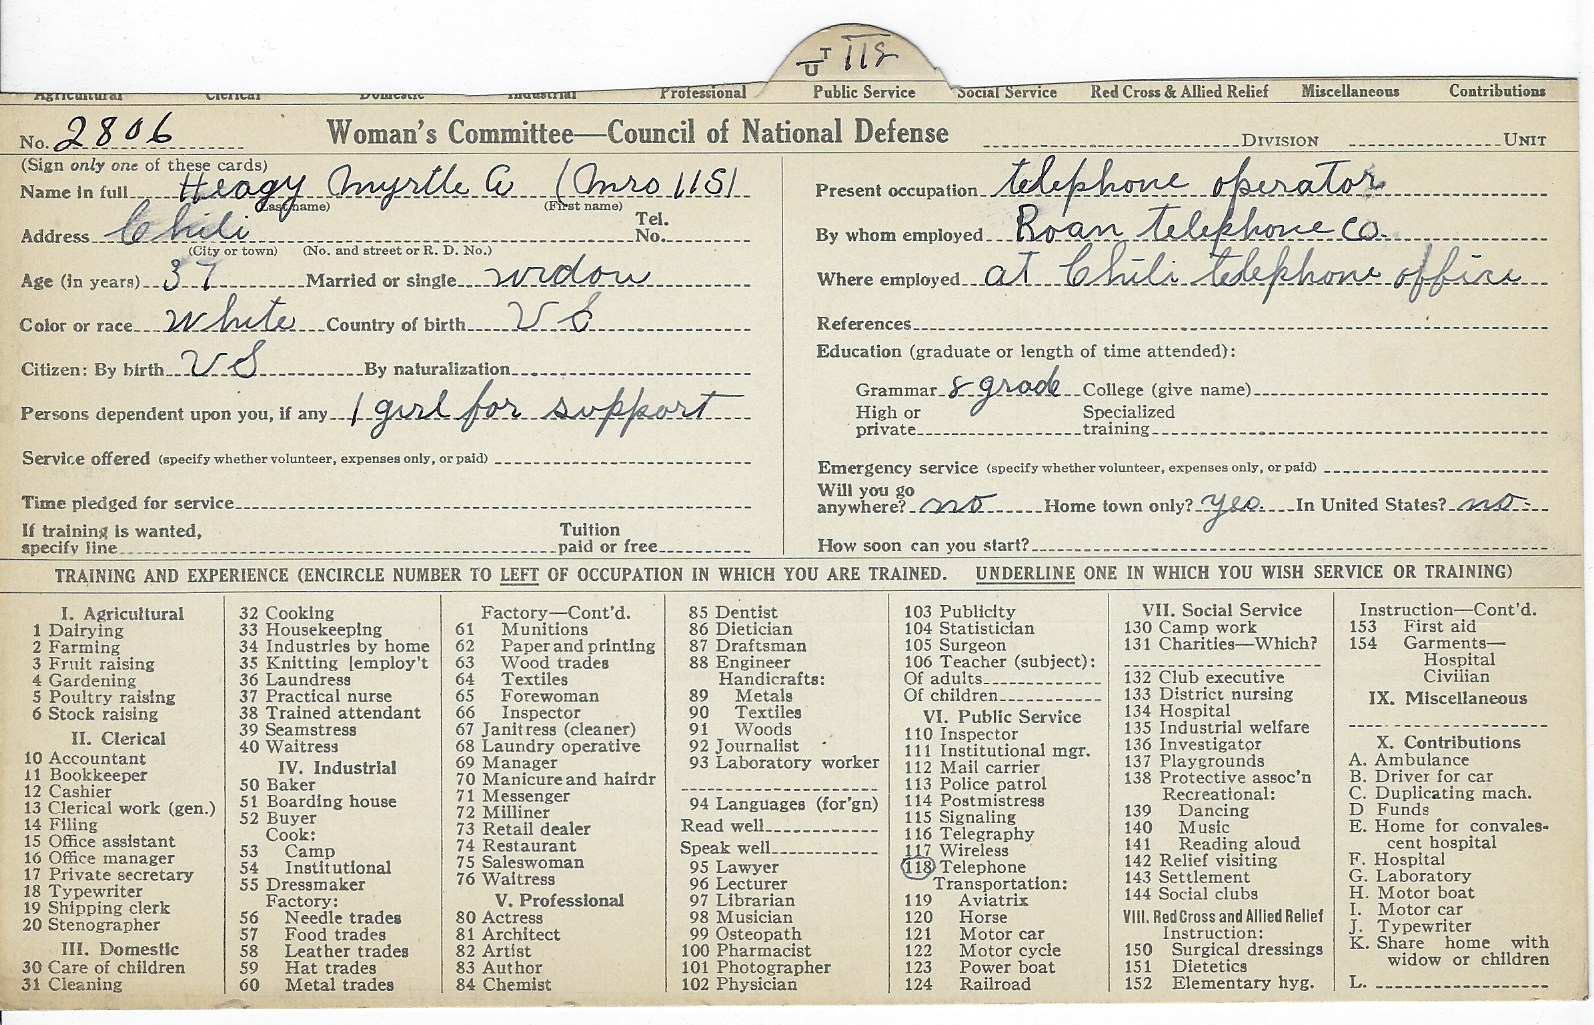 T U 118
Agricultural Clerical Domestic Industrial Professional Public Service Social Service Red Cross & Allied Relief Miscellaneous Contributions
No. 2806 Woman's Committee—Council of National Defense DIVISION UNIT
(Sign only one of these cards)
Name in full Heagy Myrtle (Mrs
(Last name) (First name)
Address Chili Tel. No.
(City or town) (No. and street or R. D. No.)
Age (in years) 37 Married or single widow
Color or race White Country of birth U S
Citizen: By birth U S By naturalization
Persons dependent upon you, if any 1 girl for support
Service offered (specify whether volunteer, expenses only, or paid)
Time pledged for service
If training is wanted, Tuition
specify line paid or free
Present occupation telephone operator
By whom employed Roan telephone co.
Where employed at Chili telephone office
References
Education (graduate or length of time attended):
Grammar 8 grade College (give name)
High or Specialized
private training
Emergency service (specify whether volunteer, expenses only, or paid)
Will you go
anywhere? no Home town only? yes. In United States? no.
How soon can you start?
TRAINING AND EXPERIENCE (ENCIRCLE NUMBER TO LEFT OF OCCUPATION IN WHICH YOU ARE TRAINED. UNDERLINE ONE IN WHICH YOU WISH SERVICE OR TRAINING)
I. Agricultural
1 Dairying
2 Farming
3 Fruit raising
4 Gardening
5 Poultry raising
6 Stock raising
II. Clerical
10 Accountant
11 Bookkeeper
12 Cashier
13 Clerical work (gen.)
14 Filing
15 Office assistant
16 Office manager
17 Private secretary
18 Typewriter
19 Shipping clerk
20 Stenographer
III. Domestic
30 Care of children
31 Cleaning
32 Cooking
33 Housekeeping
34 Industries by home
35 Knitting [employ't
36 Laundress
37 Practical nurse
38 Trained attendant
39 Seamstress
40 Waitress
IV. Industrial
50 Baker
51 Boarding house
52 Buyer
Cook:
53 Camp
54 Institutional
55 Dressmaker
Factory:
56 Needle trades
57 Food trades
58 Leather trades
59 Hat trades
60 Metal trades
Factory—Cont'd.
61 Munitions
62 Paper and printing
63 Wood trades
64 Textiles
65 Forewoman
66 Inspector
67 Janitress (cleaner)
68 Laundry operative
69 Manager
70 Manicure and hairdr
71 Messenger
72 Milliner
73 Retail dealer
74 Restaurant
75 Saleswoman
76 Waitress
V. Professional
80 Actress
81 Architect
82 Artist
83 Author
84 Chemist
85 Dentist
86 Dietician
87 Draftsman
88 Engineer
Handicrafts:
89 Metals
90 Textiles
91 Woods
92 Journalist
93 Laboratory worker
94 Languages (for'gn)
Read well
Speak well
95 Lawyer
96 Lecturer
97 Librarian
98 Musician
99 Osteopath
100 Pharmacist
101 Photographer
102 Physician
103 Publicity
104 Statistician
105 Surgeon
106 Teacher (subject):
Of adults
Of children
VI. Public Service
110 Inspector
111 Institutional mgr.
112 Mail carrier
113 Police patrol
114 Postmistress
115 Signaling
116 Telegraphy
117 Wireless
118 Telephone
Transportation:
119 Aviatrix
120 Horse
121 Motor car
122 Motor cycle
123 Power boat
124 Railroad
VII. Social Service
130 Camp work
131 Charities—Which?
132 Club executive
133 District nursing
134 Hospital
135 Industrial welfare
136 Investigator
137 Playgrounds
138 Protective assoc'n
Recreational:
139 Dancing
140 Music
141 Reading aloud
142 Relief visiting
143 Settlement
144 Social clubs
VIII. Red Cross and Allied Relief
Instruction:
150 Surgical dressings
151 Dietetics
152 Elementary hyg.
Instruction—Cont'd.
153 First aid
154 Garments—
Hospital
Civilian
IX. Miscellaneous
X. Contributions
A. Ambulance
B. Driver for car
C. Duplicating mach.
D Funds
E. Home for convales-
cent hospital
F. Hospital
G. Laboratory
H. Motor boat
I. Motor car
J. Typewriter
K. Share home with
widow or children
L.